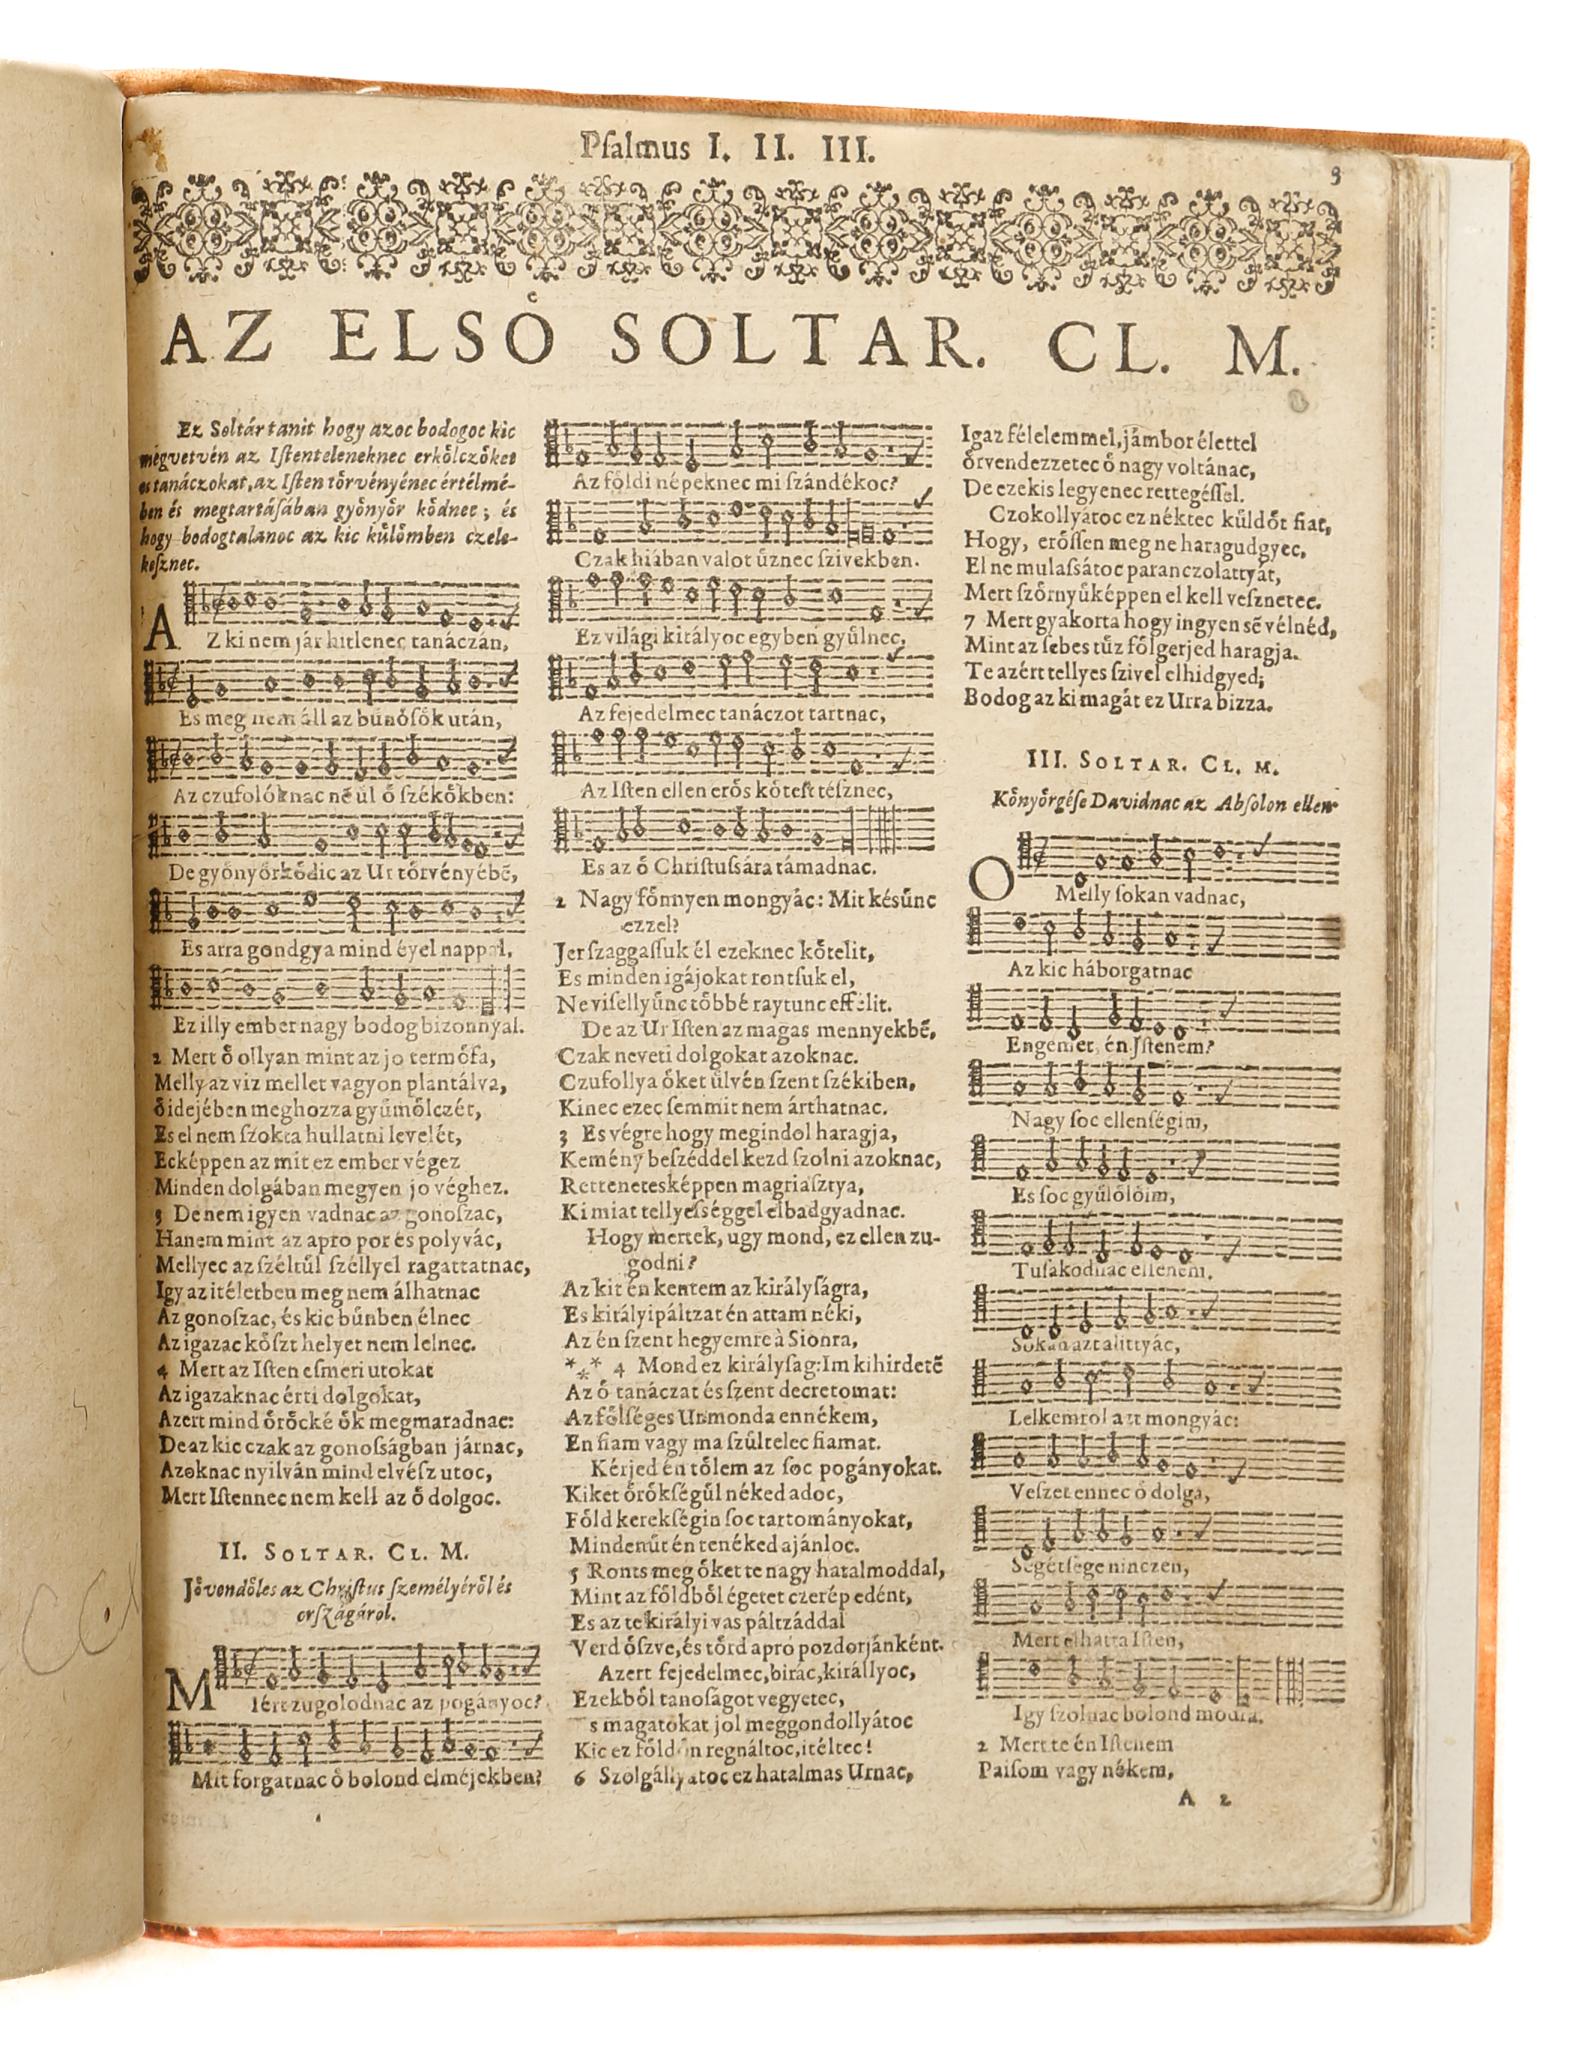 Psalmus I. II. III.
3
AZ ELSŐ SOLTAR. CL. M.
Ez Soltár tanit hogy azoc bodogoc kic
megvetvén az Iſtenteleneknec erkőlczőket
es tanáczokat, az Iſten tőrvényénec értélmé-
ben és megtartáſában győnyőr kődnec; és
hogy bodogtalanoc az kic kűlőmben czele-
keſznec.
AZ ki nem jár hitlenec tanáczán,
Es meg nem áll az bűnősők után,
Az czufolóknac nē űl ő székőkben:
De győnyőrkődic az Ur tőrvényébē,
Es arra gondgya mind éyel nappal,
Ez illy ember nagy bodog bizonnyal.
2 Mert ő ollyan mint az jo termőfa,
Melly az viz mellet vagyon plantálva,
ő idejében meghozza gyűmőlczét,
Es el nem ſzokta hullatni levelét,
Ecképpen az mit ez ember végez
Minden dolgában megyen jo véghez.
3 De nem igyen vadnac az gonoſzac,
Hanem mint az apro por és polyvác,
Mellyec az ſzéltűl ſzéllyel ragattatnac,
Igy az itéletben meg nem álhatnac
Az gonoſzac, és kic bűnben élnec
Az igazac kőszt helyet nem lelnec.
4 Mert az Iſten eſmeri utokat
Az igazaknac érti dolgokat,
Azert mind őrőcké ők megmaradnac:
De az kic czak az gonoſságban járnac,
Azoknac nyilván mind elvész utoc,
Mert Iſtennec nem kell az ő dolgoc.
II. SOLTAR. CL. M.
Jővendőles az Chriſtus ſzemélyéről és
orſzágárol.
Miért zugolodnac az pogányoc?
Mit forgatnac ő bolond elméjekben?
Az főldi népeknec mi ſzándékoc?
Czak hiában valot űznec ſzivekben.
Ez világi kitályoc egyben gyűlnec,
Az fejedelmec tanáczot tartnac,
Az Iſten ellen erős kőteſt tésznec,
Es az ő Chriſtuſsára támadnac.
2 Nagy főnnyen mongyác: Mit késűnc
ezzel?
Jer ſzaggaſſuk él ezeknec kőtelit,
Es minden igájokat rontſuk el,
Ne viſellyűnc tőbbé raytunc effélit.
De az Ur Iſten az magas mennyekbē,
Czak neveti dolgokat azoknac.
Czufollya őket űlvén ſzent ſzékiben,
Kinec ezec ſemmit nem árthatnac.
3 Es végre hogy megindol haragja,
Kemény beſzéddel kezd ſzolni azoknac,
Rettenetesképpen magriaſztya,
Ki miat tellyeſséggel elbadgyadnac.
Hogy mertek, ugy mond, ez ellen zu-
godni?
Az kit én kentem az királyſágra,
Es királyi páltzat én attam néki,
Az én ſzent hegyemre à Sionra,
*⁎* 4 Mond ez királyſag: Im kihirdetē
Az ő tanáczat és ſzent decretomat:
Az főlſéges Ur monda ennékem,
En fiam vagy ma ſzűltelec fiamat.
Kérjed én tőlem az ſoc pogányokat.
Kiket őrőkſégűl néked adoc,
Főld kerekſégin ſoc tartományokat,
Mindenűt én tenéked ajánloc.
5 Ronts meg őket te nagy hatalmoddal,
Mint az főldből égetet czerép edént,
Es az te királyi vas páltzáddal
Verd őſzve, és tőrd apro pozdorjánként.
Azert fejedelmec, birác, királlyoc,
Ezekből tanoſágot vegyetec,
s magatokat jol meggondollyátoc
Kic ez főldőn regnáltoc, itéltec!
6 Szolgállyatoc ez hatalmas Urnac,
Igaz félelemmel, jámbor élettel
őrvendezzetec ő nagy voltánac,
De ezekis legyenec rettegéſſel.
Czokollyatoc ez néktec kűldőt fiat,
Hogy, erőſſen meg ne haragudgyec,
El ne mulaſsátoc paranczolattyát,
Mert ſzőrnyűképpen el kell veſznetec.
7 Mert gyakorta hogy ingyen sē vélnéd,
Mint az ſebes tűz főlgerjed haragja.
Te azért tellyes ſzivel elhidgyed;
Bodog az ki magát ez Urra bizza.
III. SOLTAR. CL. M.
Kőnyőrgéſe Davidnac az Abſolon ellen
O Melly ſokan vadnac,
Az kic háborgatnac
Engemet, én Iſtenem?
Nagy ſoc ellenſégim,
Es ſoc gyűlőlőim,
Tuſakodnac ellenem.
Sokan azt alittyác,
Lelkemrol azt mongyác:
Veſzet ennec ő dolga,
Segétſége ninczen,
Mert elhatta Iſten,
Igy ſzolnac bolond modra.
2 Mert te én Iſtenem
Paiſom vagy nékem,
A 2